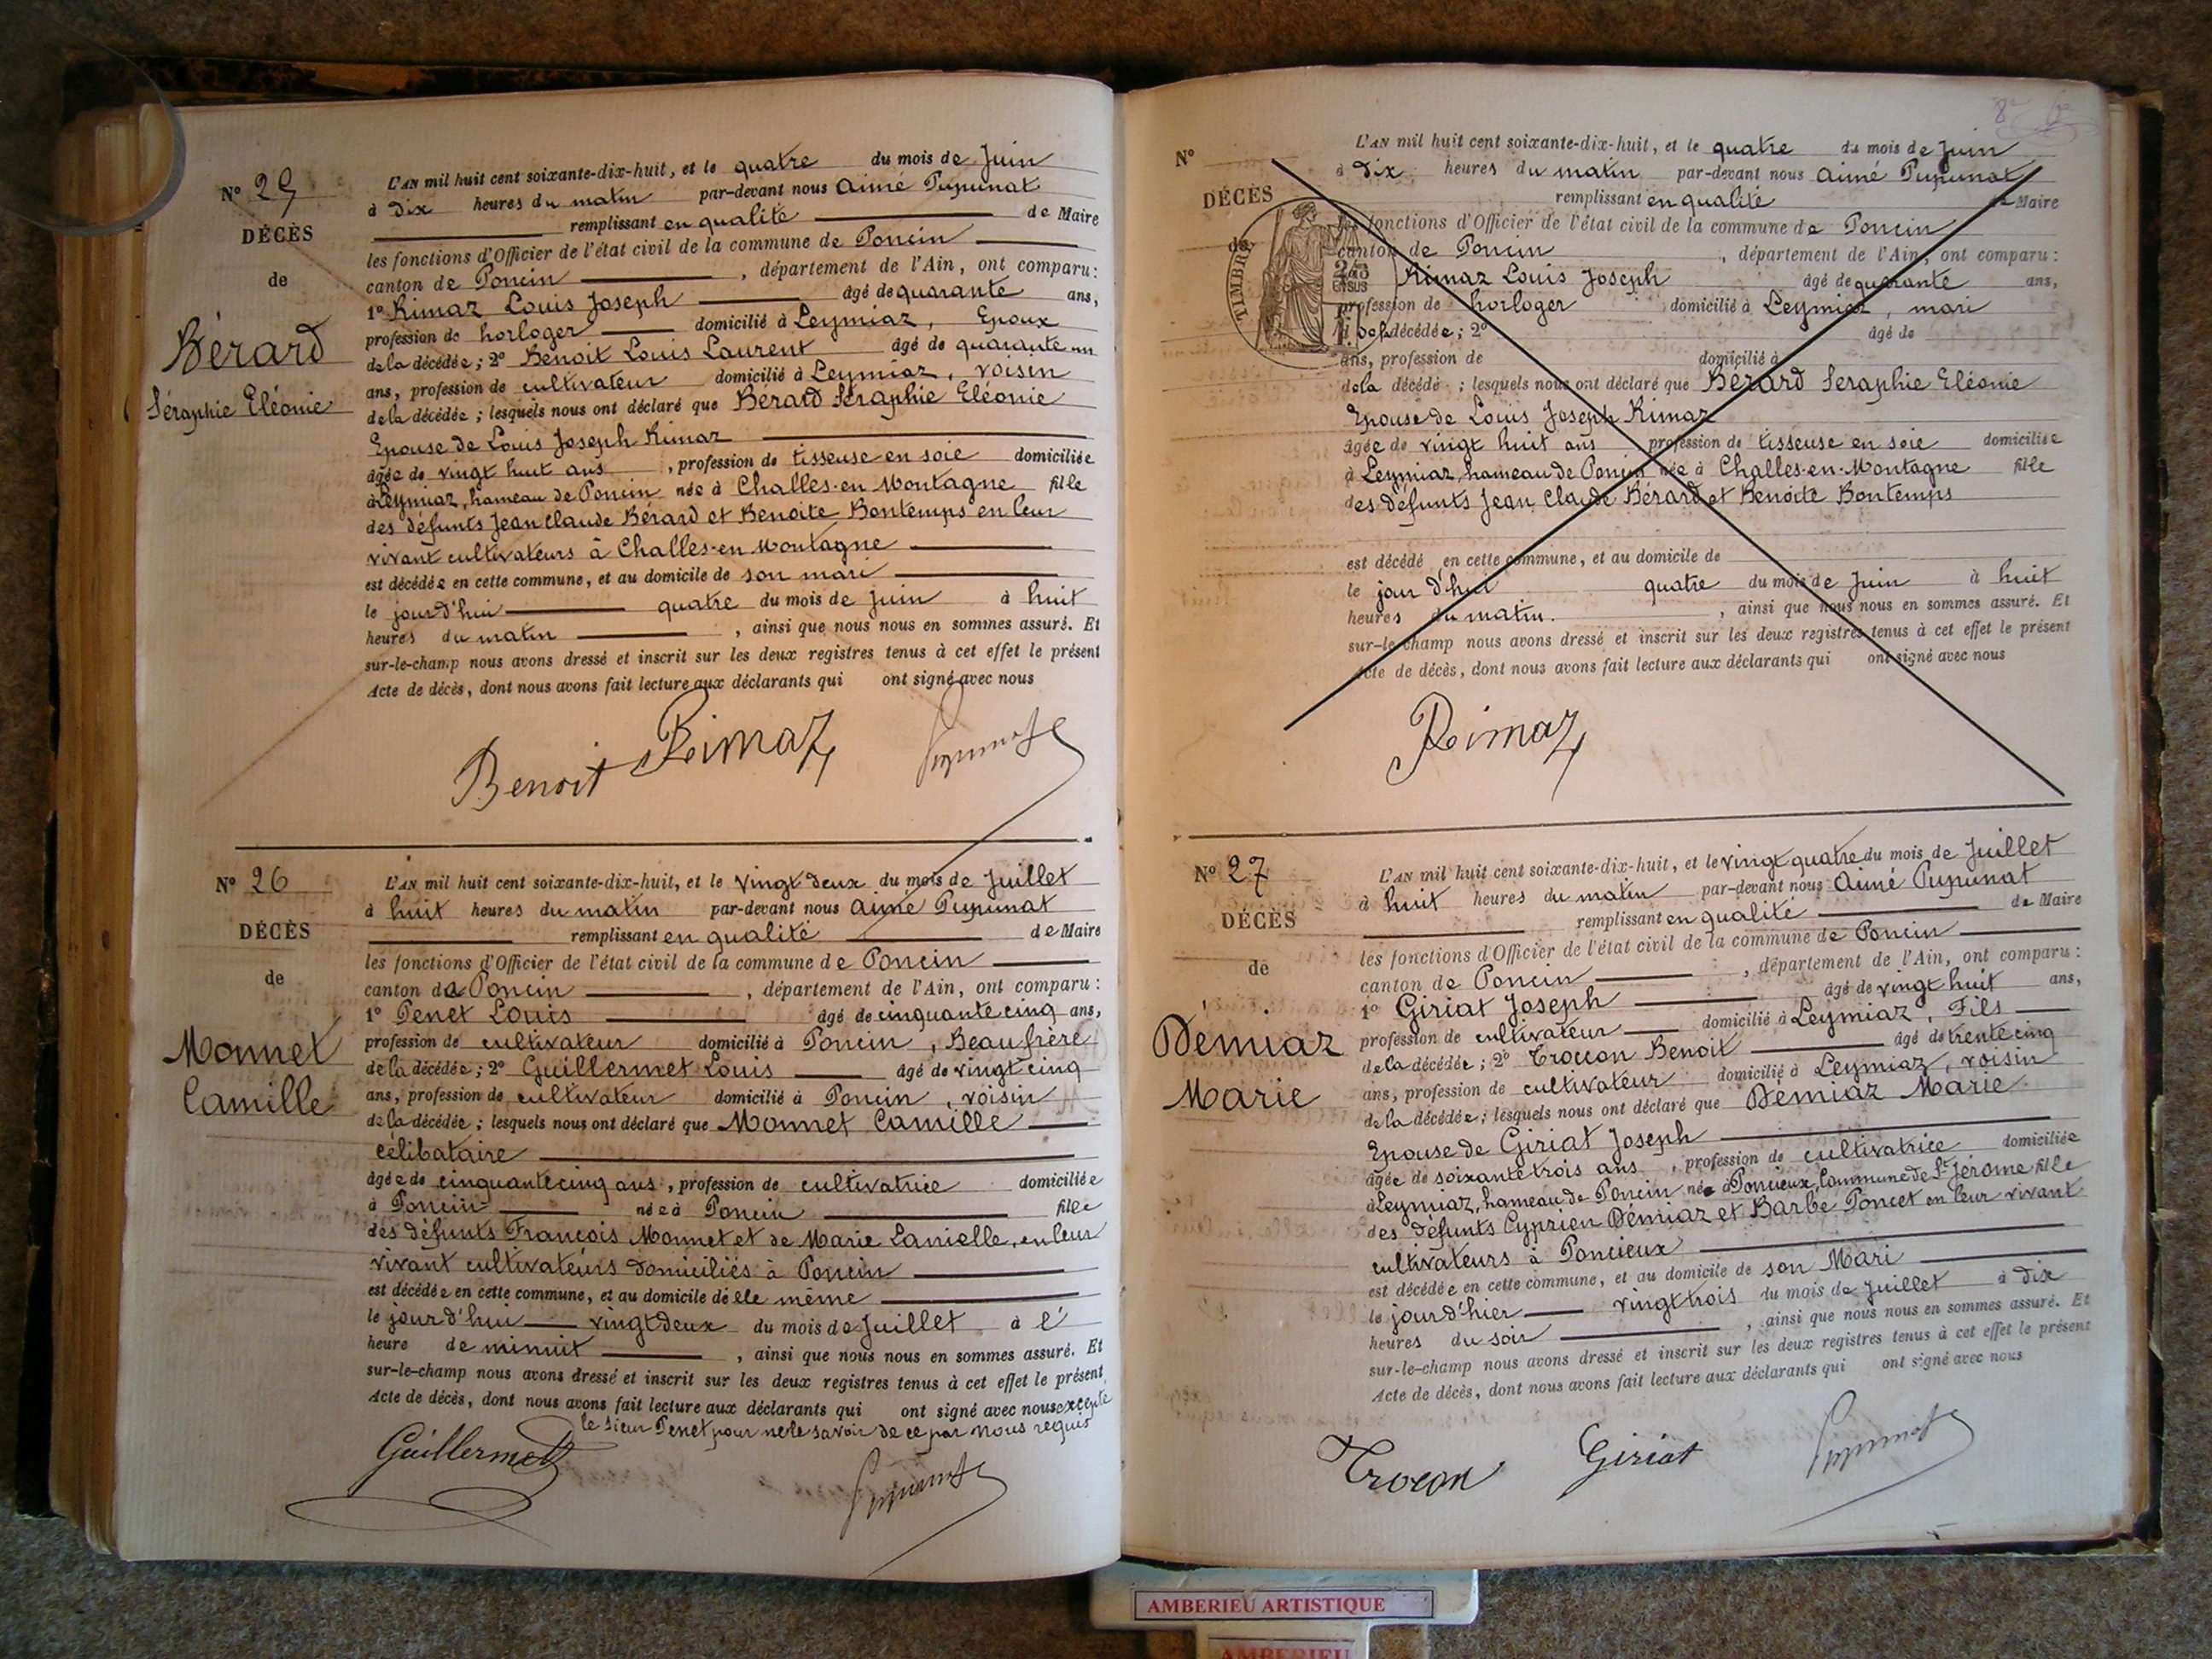 N° 25
DÉCÈS
de
Bérard
Séraphie Eléonie
L'AN mil huit cent soixante-dix-huit, et le quatre du mois de Juin
à Dix heures du matin par-devant nous Aimé Pupunat
remplissant en qualité de Maire
les fonctions d'Officier de l'état civil de la commune de Poncin
canton de Poncin , département de l'Ain, ont comparu :
1° Rimaz Louis Joseph âgé de quarante ans,
profession de horloger domicilié à Leymiaz, Epoux
de la décédée ; 2° Benoit Louis Laurent âgé de quarante un
ans, profession de cultivateur domicilié à Leymiaz, voisin
de la décédée ; lesquels nous ont déclaré que Bérard Séraphie Eléonie
Epouse de Louis Joseph Rimaz
âgée de vingt huit ans , profession de tisseuse en soie domiciliée
à Leymiaz, hameau de Poncin née à Challes-en Montagne fille
des défunts Jean Claude Bérard et Benoite Bontemps en leur
vivant cultivateurs à Challes-en Montagne
est décédée en cette commune, et au domicile de son mari
le jourd'hui quatre du mois de Juin à huit
heures du matin , ainsi que nous nous en sommes assuré. Et
sur-le-champ nous avons dressé et inscrit sur les deux registres tenus à cet effet le présent
Acte de décès, dont nous avons fait lecture aux déclarants qui ont signé avec nous
Benoit Rimaz Pupunat
N° 26
DÉCÈS
de
Monnet
Camille
L'AN mil huit cent soixante-dix-huit, et le vingt deux du mois de Juillet
à huit heures du matin par-devant nous Aimé Pupunat
remplissant en qualité de Maire
les fonctions d'Officier de l'état civil de la commune de Poncin
canton de Poncin , département de l'Ain, ont comparu :
1° Penet Louis âgé de cinquante cinq ans,
profession de cultivateur domicilié à Poncin , Beau frère
de la décédée ; 2° Guillermet Louis âgé de vingt cinq
ans, profession de cultivateur domicilié à Poncin , voisin
de la décédée ; lesquels nous ont déclaré que Monnet Camille
célibataire
âgée de cinquante cinq ans , profession de cultivatrice domiciliée
à Poncin née à Poncin fille
des défunts François Monnet et de Marie Lanielle, en leur
vivant cultivateurs domiciliés à Poncin
est décédée en cette commune, et au domicile de elle même
le jourd'hui vingt deux du mois de Juillet à l'
heure de minuit , ainsi que nous nous en sommes assuré. Et
sur-le-champ nous avons dressé et inscrit sur les deux registres tenus à cet effet le présent
Acte de décès, dont nous avons fait lecture aux déclarants qui ont signé avec nous excepté
le sieur Penet pour ne le savoir de ce par nous requis
Guillermet Pupunat
N°
DÉCÈS
de
TIMBRE
L'AN mil huit cent soixante-dix-huit, et le quatre du mois de Juin
à Dix heures du matin par-devant nous Aimé Pupunat
remplissant en qualité de Maire
les fonctions d'Officier de l'état civil de la commune de Poncin
canton de Poncin , département de l'Ain, ont comparu :
Rimaz Louis Joseph âgé de quarante ans,
profession de horloger domicilié à Leymiaz, mari
décédée ; 2° âgé de
ans, profession de domicilié à
de la décédé ; lesquels nous ont déclaré que Bérard Séraphie Eléonie
Epouse de Louis Joseph Rimaz
âgée de vingt huit ans profession de tisseuse en soie domiciliée
à Leymiaz, hameau de Poncin née à Challes-en-Montagne fille
des défunts Jean Claude Bérard et Benoite Bontemps
est décédé en cette commune, et au domicile de
le jour d'hui quatre du mois de Juin à huit
heures du matin. , ainsi que nous nous en sommes assuré. Et
sur-le-champ nous avons dressé et inscrit sur les deux registres tenus à cet effet le présent
Acte de décès, dont nous avons fait lecture aux déclarants qui ont signé avec nous
Rimaz
N° 27
DÉCÈS
de
Démiaz
Marie
L'AN mil huit cent soixante-dix-huit, et le vingt quatre du mois de Juillet
à huit heures du matin par-devant nous Aimé Pupunat
remplissant en qualité de Maire
les fonctions d'Officier de l'état civil de la commune de Poncin
canton de Poncin , département de l'Ain, ont comparu :
1° Giriat Joseph âgé de vingt huit ans,
profession de cultivateur domicilié à Leymiaz, Fils
de la décédée ; 2° Troccon Benoit âgé de trente cinq
ans, profession de cultivateur domicilié à Leymiaz, voisin
de la décédée ; lesquels nous ont déclaré que Démiaz Marie
Epouse de Giriat Joseph
âgée de soixante trois ans , profession de cultivatrice domiciliée
à Leymiaz, hameau de Poncin née à Poncieux, Commune de St Jérome fille
des défunts Cyprien Démiaz et Barbe Poncet en leur vivant
cultivateurs à Poncieux
est décédée en cette commune, et au domicile de son Mari
le jourd'hier vingt trois du mois de Juillet à dix
heures du soir , ainsi que nous nous en sommes assuré. Et
sur-le-champ nous avons dressé et inscrit sur les deux registres tenus à cet effet le présent
Acte de décès, dont nous avons fait lecture aux déclarants qui ont signé avec nous
Trocon Giriat Pupunat
AMBERIEU ARTISTIQUE
AMBERIEU